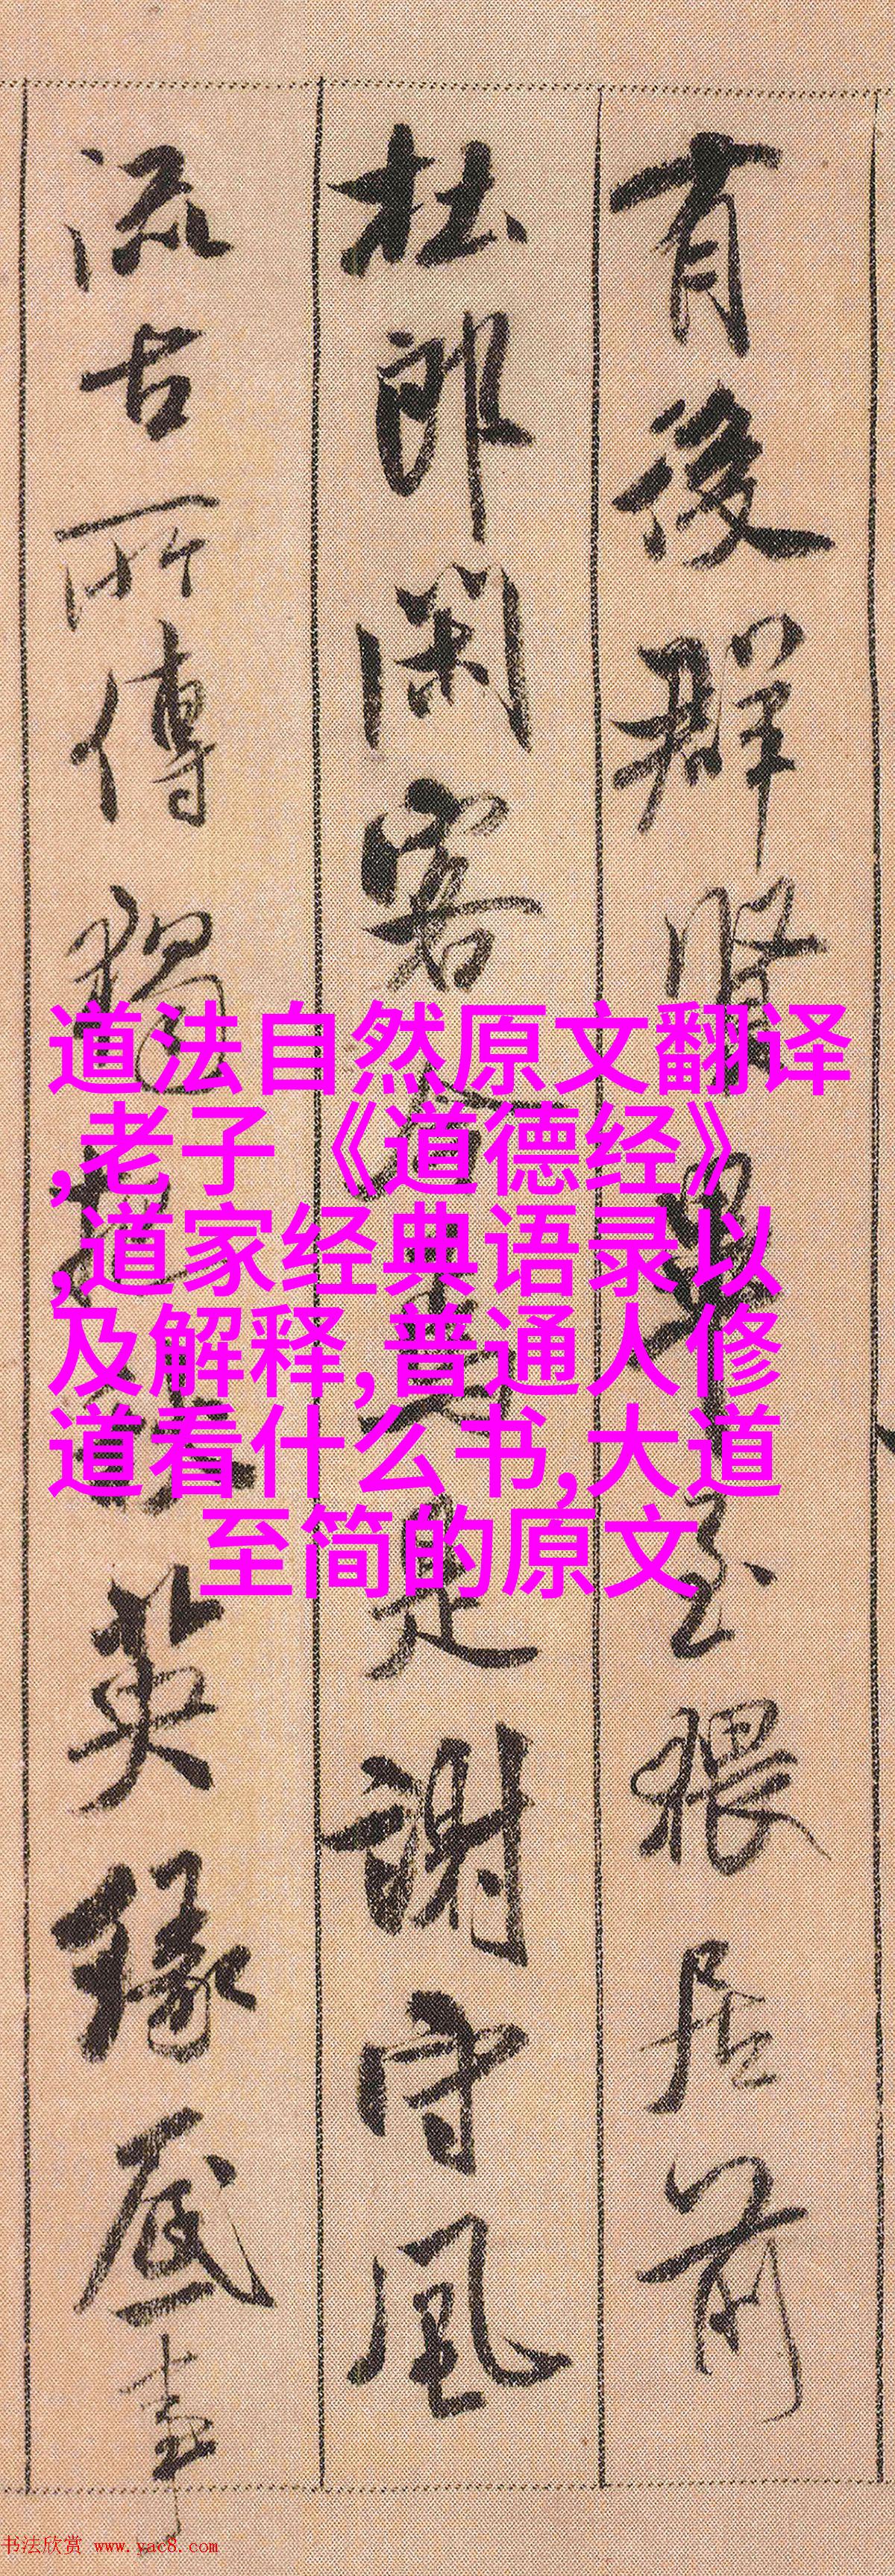 有後群賢畢至猥居前
杜郎閑客今焉是謝守風
流古所傳獨把秋英緣底事
道法自然原文翻译
,老子《道德经》
,道家经典语录以
及解释,普通人修
道看什么书,大道
至简的原文
书法欣赏 www.yac8.com